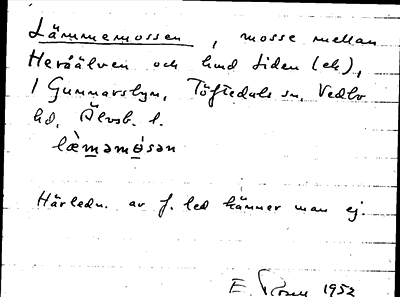 Lämmemossen, mosse mellan
Heråälven och hmd Liden (ek),
/ Gunnarsbyn, Töftedals sn, Vedbo
hd, Älvsb. l.
læ̀məmòsən
Härledn. av f. led känner man ej.
E. 1952